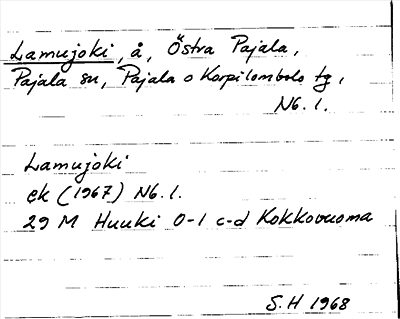 Lamujoki, å, Östra Pajala,
Pajala sn, Pajala o Korpilombolo tg,
Nb. l.
Lamujoki
ek (1967) Nb. l.
29 M Huuki 0-1 c-d Kokkovuoma
S.H 1968